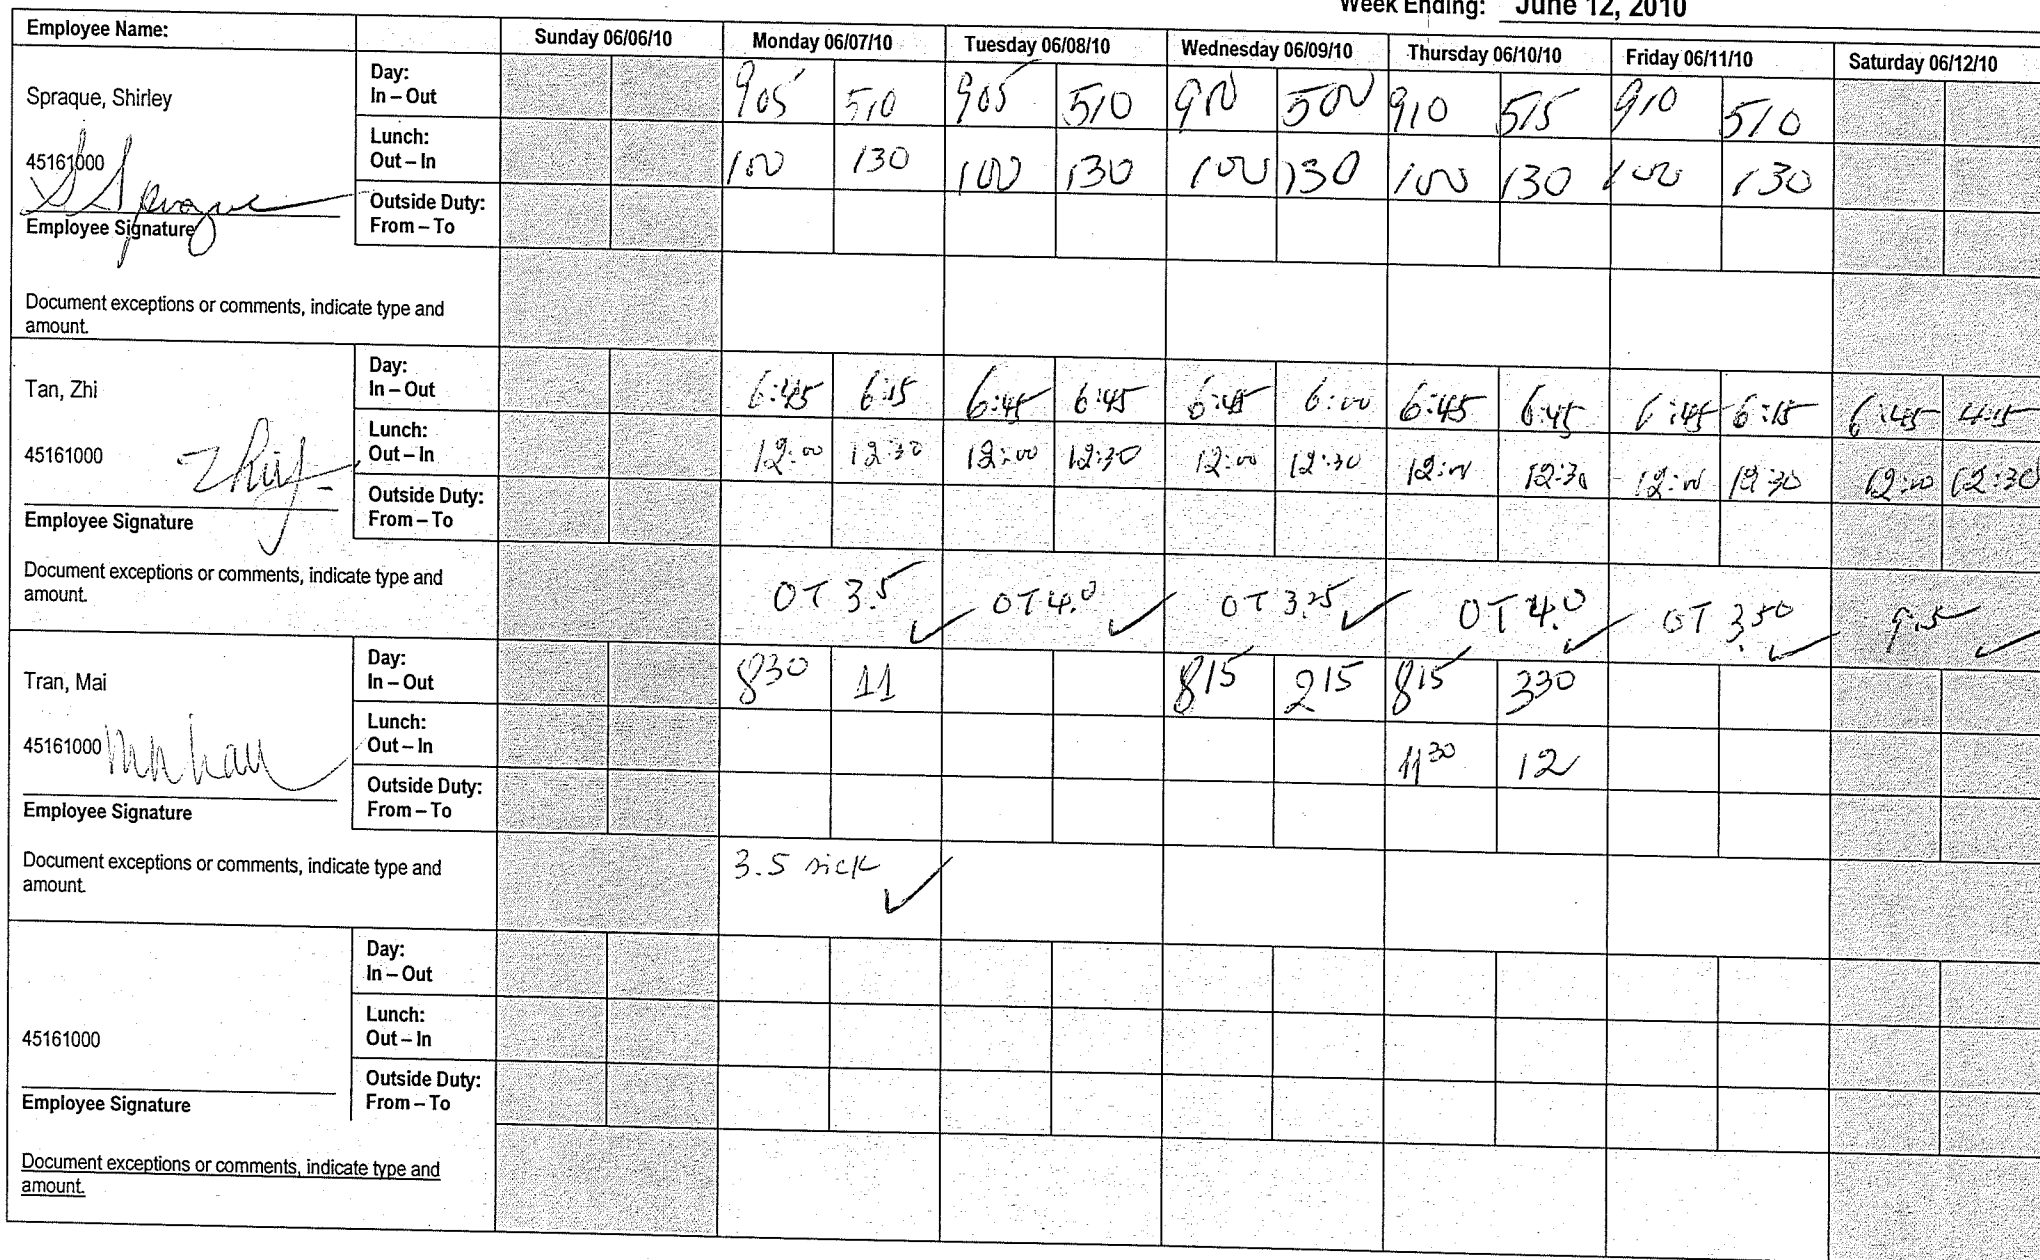 Week Ending: June 12, 2010
Employee Name: Sunday 06/06/10 Monday 06/07/10 Tuesday 06/08/10 Wednesday 06/09/10 Thursday 06/10/10 Friday 06/11/10 Saturday 06/12/10
Spraque, Shirley
45161000
S Sprague
Employee Signature
Day:
In – Out 905 510 905 510 910 500 910 515 910 510
Lunch:
Out – In 100 130 100 130 100 130 100 130 100 130
Outside Duty:
From – To
Document exceptions or comments, indicate type and
amount.
Tan, Zhi
45161000
Employee Signature
Day:
In – Out 6:45 6:15 6:45 6:45 6:45 6:00 6:45 6:45 6:45 6:15 6:45 4:45
Lunch:
Out – In 12:00 12:30 12:00 12:30 12:00 12:30 12:00 12:30 12:00 12:30 12:00 12:30
Outside Duty:
From – To
Document exceptions or comments, indicate type and
amount. OT 3.5 OT 4.0 OT 3.25 OT 4.0 OT 3.50 9.5
Tran, Mai
45161000
Employee Signature
Day:
In – Out 830 11 815 215 815 330
Lunch:
Out – In 1130 12
Outside Duty:
From – To
Document exceptions or comments, indicate type and
amount. 3.5 sick
45161000
Employee Signature
Day:
In – Out
Lunch:
Out – In
Outside Duty:
From – To
Document exceptions or comments, indicate type and
amount.